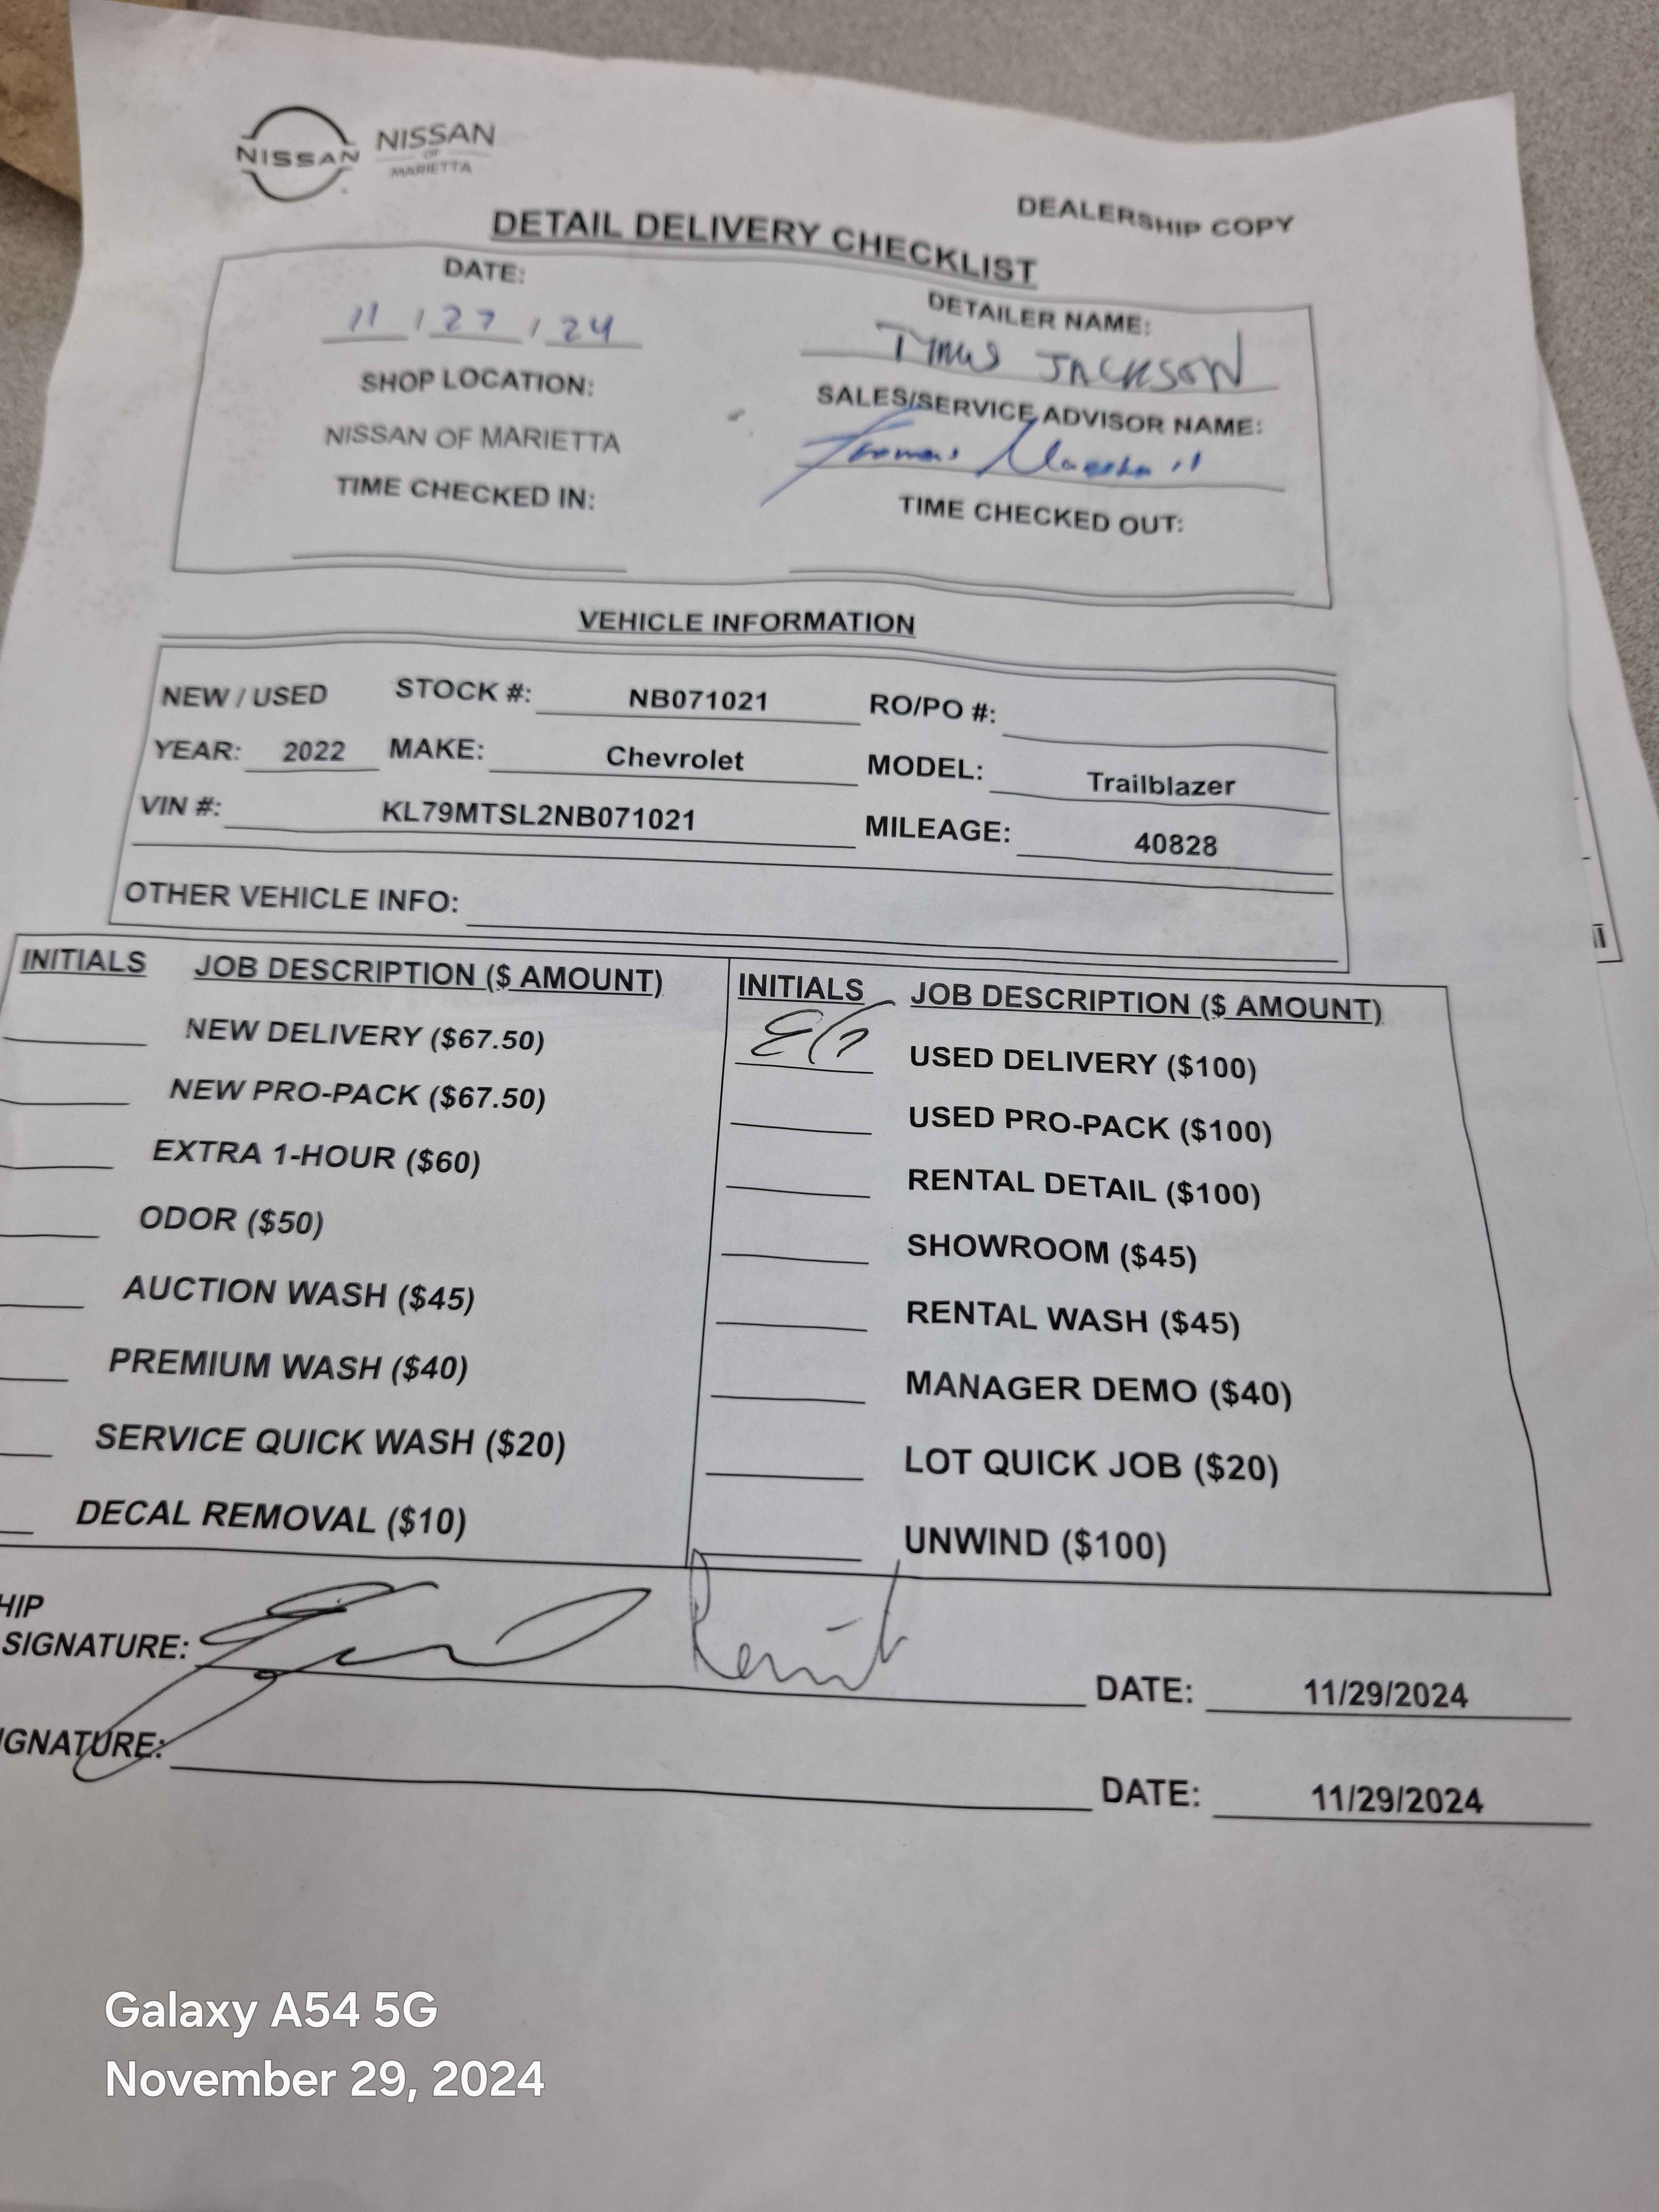 NISSAN NISSAN
OF
MARIETTA
DEALERSHIP COPY
DETAIL DELIVERY CHECKLIST
DATE: DETAILER NAME:
11 / 27 / 24 JACKSON
SHOP LOCATION: SALES/SERVICE ADVISOR NAME:
NISSAN OF MARIETTA
TIME CHECKED IN: TIME CHECKED OUT:
VEHICLE INFORMATION
NEW / USED STOCK #: NB071021 RO/PO #:
YEAR: 2022 MAKE: Chevrolet MODEL: Trailblazer
VIN #: KL79MTSL2NB071021 MILEAGE: 40828
OTHER VEHICLE INFO:
INITIALS JOB DESCRIPTION ($ AMOUNT) INITIALS JOB DESCRIPTION ($ AMOUNT)
NEW DELIVERY ($67.50) USED DELIVERY ($100)
NEW PRO-PACK ($67.50) USED PRO-PACK ($100)
EXTRA 1-HOUR ($60) RENTAL DETAIL ($100)
ODOR ($50) SHOWROOM ($45)
AUCTION WASH ($45) RENTAL WASH ($45)
PREMIUM WASH ($40) MANAGER DEMO ($40)
SERVICE QUICK WASH ($20) LOT QUICK JOB ($20)
DECAL REMOVAL ($10) UNWIND ($100)
HIP
SIGNATURE: DATE: 11/29/2024
IGNATURE: DATE: 11/29/2024
Galaxy A54 5G
November 29, 2024